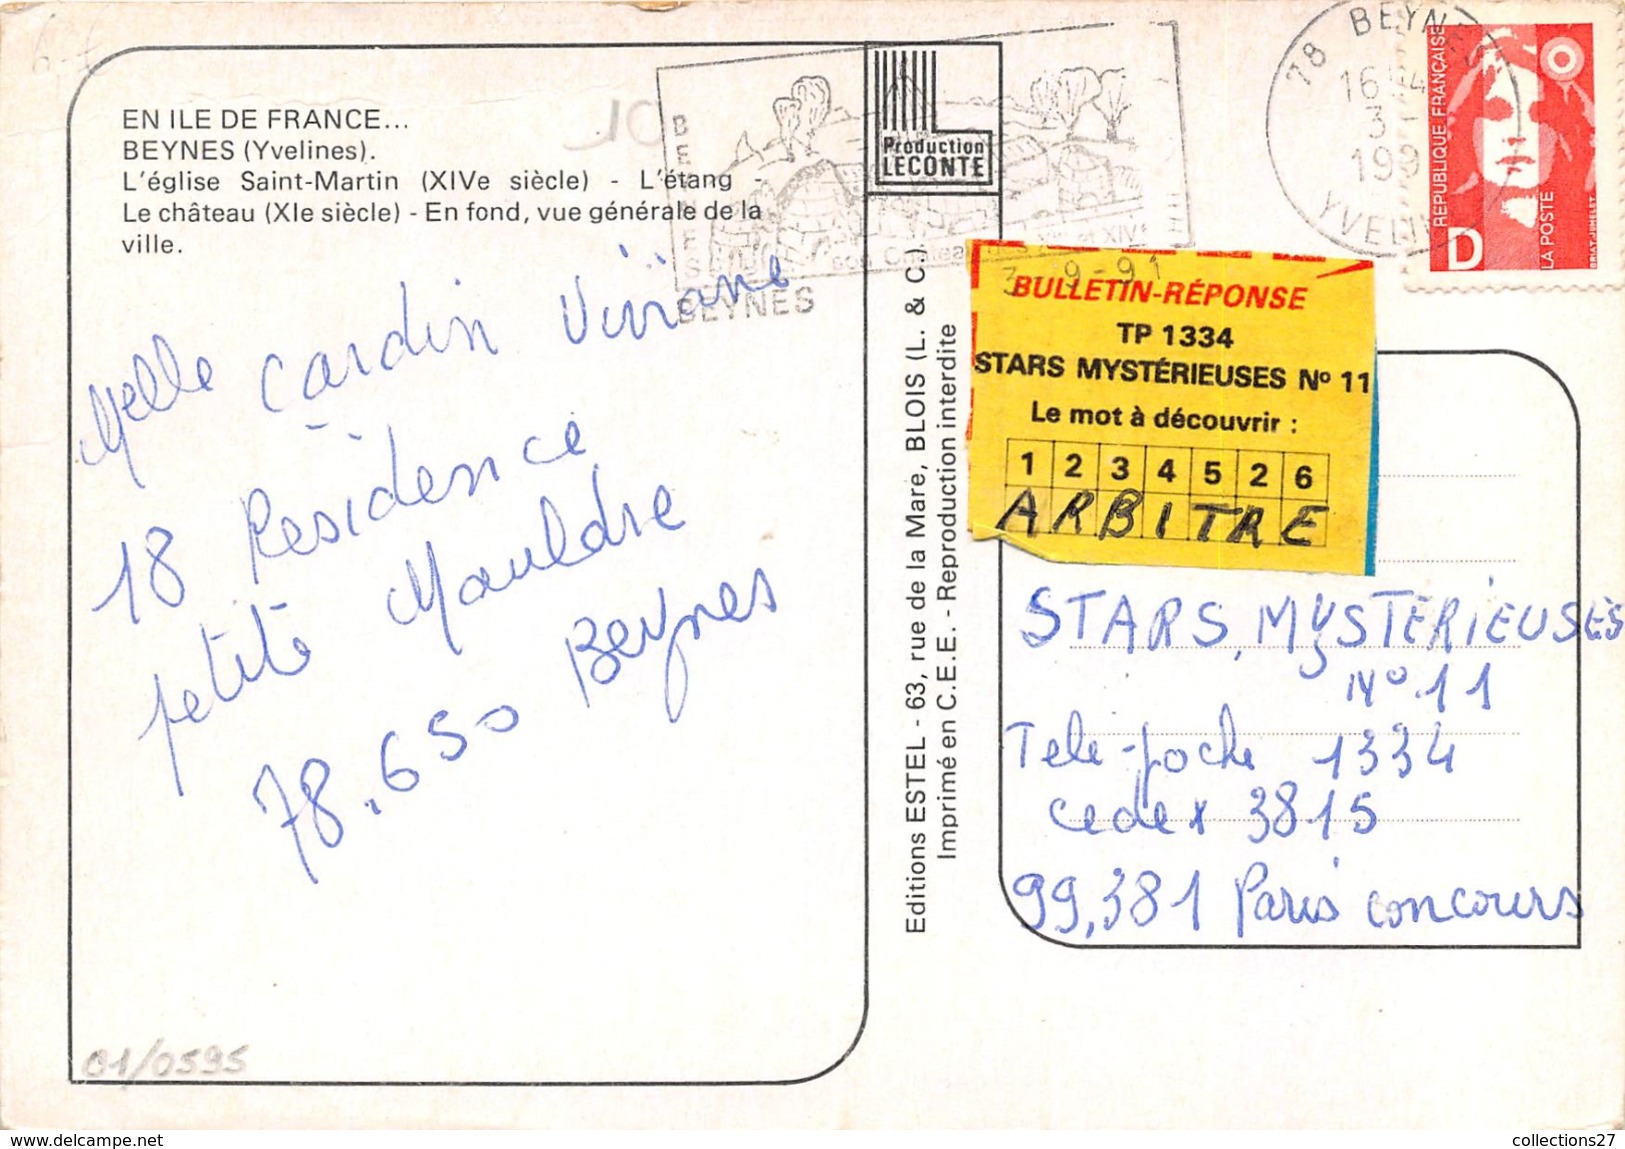 EN ILE DE FRANCE...
BEYNES (Yvelines).
L'église Saint-Martin (XIVe siècle) - L'étang -
Le château (XIe siècle) - En fond, vue générale de la
ville.
Melle Cardin Viviane
18 Résidence
petite Mauldre
78.650 Beynes
01/0595
BEYNES
son Château
et XIVe
BEYNES
Production
LECONTE
Editions ESTEL - 63, rue de la Mare, BLOIS (L. & C.).
Imprimé en C.E.E. - Reproduction interdite
78 BEYNES
16 H
3 -
199
YVELIN
3 -9-91
RÉPUBLIQUE FRANÇAISE
D
LA POSTE
BRIAT-JUMELET
BULLETIN-RÉPONSE
TP 1334
STARS MYSTÉRIEUSES No 11
Le mot à découvrir :
1 2 3 4 5 2 6
ARBITRE
STARS MYSTERIEUSES
No 11
Tele-poche 1334
cedex 3815
99,381 Paris concours
collections27